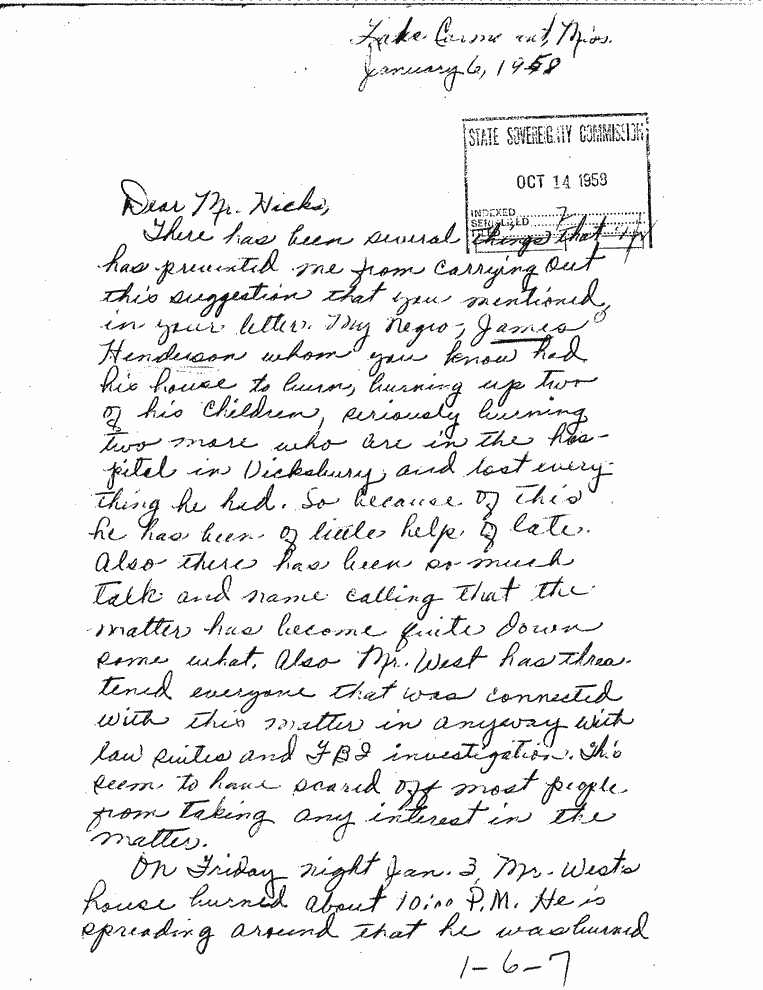 Lake Cormorant, Miss.
January 6, 1958
STATE SOVEREIGNTY COMMISSION
OCT 14 1958
INDEXED
SERIALIZED
FILED
Dear Mr. Hicks,
There has been several things that
has prevented me from carrying out
this suggestion that you mentioned
in your letter. My negro, James
Henderson whom you know had
his house to burn, burning up two
of his children, seriously burning
two more who are in the hos-
pital in Vicksburg, and lost every-
thing he had. So because of this
he has been of little help of late.
Also there has been so much
talk and name calling that the
matter has become quite down
some what. Also Mr. West has threa-
tened everyone that was connected
with this matter in anyway with
law suites and FBI investigation. This
seem to have scared off most people
from taking any interest in the
matter.
On Friday night Jan. 3, Mr. West's
house burned about 10:00 P.M. He is
spreading around that he was burned
1-6-7